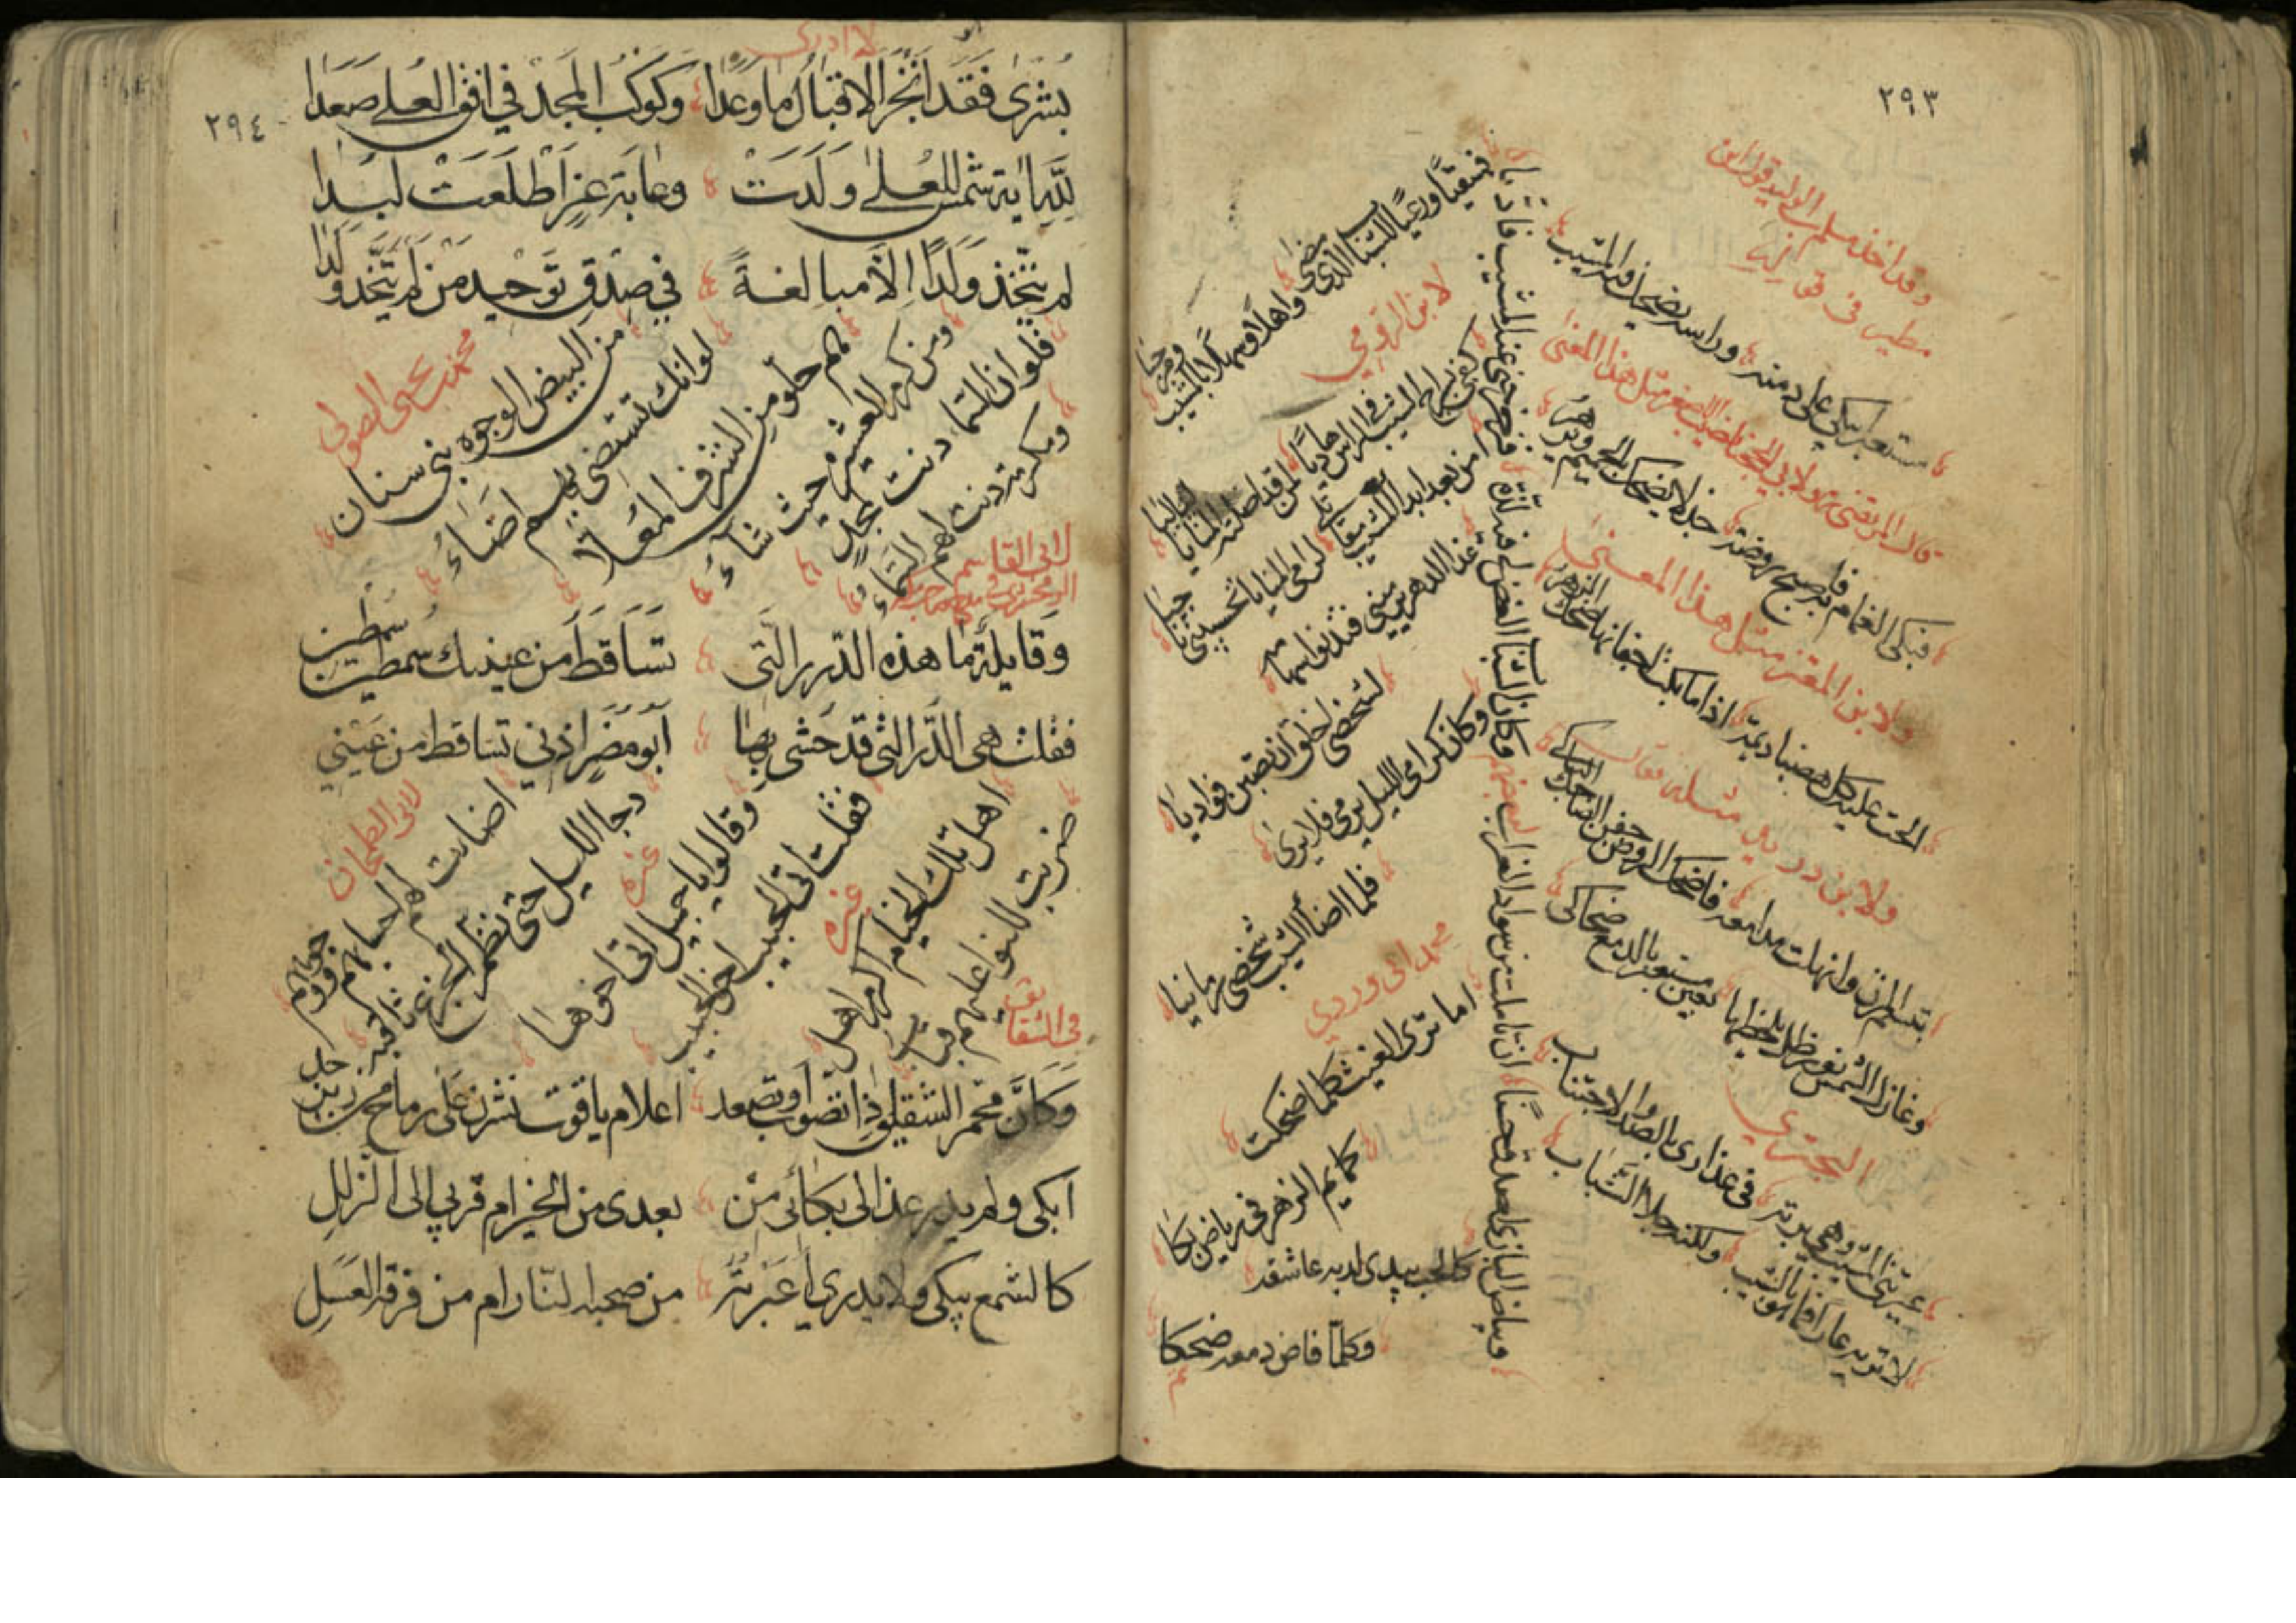 ٢٩٣
وقد اخذ مسلم بن الوليد قول ابن
مطير فى قوله
مستعبر يبكي على دمنة وراسه يضحك فيه المشيب
قال المرتضى ولابي الحجناء نصيب الاصغر مثل هذا المعنى
فبكى الغمام به فاصبح روضه جذلا يضحك بالحميم ويزهر
ولابن المعتز مثل هذا المعنى
الحت عليه كل هضباء ديمة اذا ما بكت اجفانها ضحك الزهر
ولابن دريد مثله فقال
تبسم المزن وانهلت مدامعه فاضحك الروض جفن الضاحك الباكي
وغازل الشمس نور ظل يلحظها بعين مستعبر بالدمع ضحاك
البحتري
عيرتني المشيب وهي بدته في عذاري بالصد والاجتناب
لا تريه عارا فما هو بالشيب ولكنه جلاء الشباب
وبياض البازي اصدق حسنا ان تاملت من سواد الغراب
وكان الشباب الغض لي فيه لذة
فسقيا ورعيا للشباب الذي مضى واهلا وسهلا بالمشيب ومرحبا
لابن الرومي
كفى بسراج الشيب في الراس هاديا لمن قد اضلته المنايا لياليا
امن بعد ابداء المشيب مقاتلي لرامي المنايا تحسبيني ناجيا
غدا الدهر يرميني فتدنو سهامه
لشخصي اخلق ان تصبن فواديا
وكان كرامي الليل يرمي فلا يرى
فلما اضاء الشيب شخصي رمانيا
محمد ابي وردي
اما ترى الغيث كلما ضحكت
كمايم الزهر في رياض بكا
كالحب يبدي لديه عاشقه
وكلما فاض دمعه ضحكا
٢٩٤
لا ادرى
بُشْرَى فَقَد انْجَزَ الاقبَالُ مَا وَعَدَا وكَوكَبُ المجد في افق العلى صَعَدَا
للهِ اية شمس للعُلى وَلَدَتْ وغابة عزٍ اَطْلَعَتْ لَبَدا
لم يتّخذ وَلَدًا اِلَّا مبالغةً في صِدْق تَوحِيد مَن لم يتَّخذ وَلَدا
محمد بن يحيى الصولى
من البيض الوجوه بني سنان لو انك تستضيء بهم اَضَاءُ
هم حلو من الشرف المُعلّا ومن كرم العشيرة حيث شاءُ
فلو ان السما دنت لمجدٍ ومكرمة دنت لهم السَّماءُ
لابى القاسم
الزمخشرى
وقايلةٍ ما هذه الدّرر الّتي تَسَاقَطَ من عينيك سمطين سمطين
فقلت هي الدّرر الّتي قد حَشى بها اَبُو مُضَرٍ اُذني تساقط من عَيْني
لابى الطمحان
اضاءت لهم احسابهم ووجوههم دجا الليل حتى نظم الجزع ثاقبه
غيره
وقالوا يا جميل اتى اخوها فقلت اتى الحبيب اخو الحبيب
غيره
اهل تلك الخيام اكرم اهل ضربت للنوا عليهم قباب
في الشقايق
وكَأَنَّ محمر الشقيق اذا تصوّب او تصعد اعلام ياقوت نشرن على رماح من زبرجد
ابكى ولم يدر عذالى بكائى من بعدى من الخيرام قربى الى الزلل
كالشمع يبكى ولا يدرى أعَبْرته من صحبة النّار ام من فرقة العسَلِ